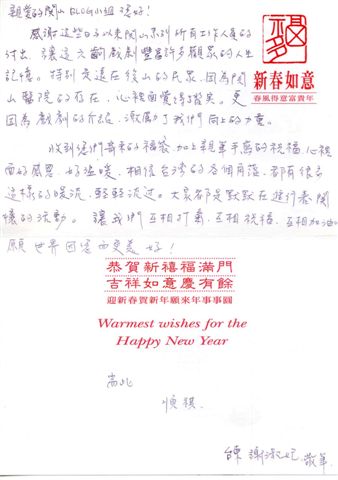 親愛的關山BLOG小組 您好！
感謝這些日子以來關山系列所有工作人員的
付出，讓這六齣戲劇豐富許多觀眾的人生
記憶。特別是遠在後山的民眾，因為關
山醫院的存在，心裡面覺得踏實。更
因為戲劇的介紹，激勵了我們向上的力量。
收到您們寄來的福袋，加上親筆手寫的祝福，心裡
面好感恩、好溫暖，相信台灣的各個角落，都有很多
這樣的暖流，輕輕流過。大家都是默默在進行著關
懷的流動。讓我們互相打氣、互相祝福、互相加油。
願世界因愛而更美好！
福
新春如意
春風得意富貴年
恭賀新禧福滿門
吉祥如意慶有餘
迎新春賀新年願來年事事圓
Warmest wishes for the
Happy New Year
耑此
順祺
謝淑妃 敬筆